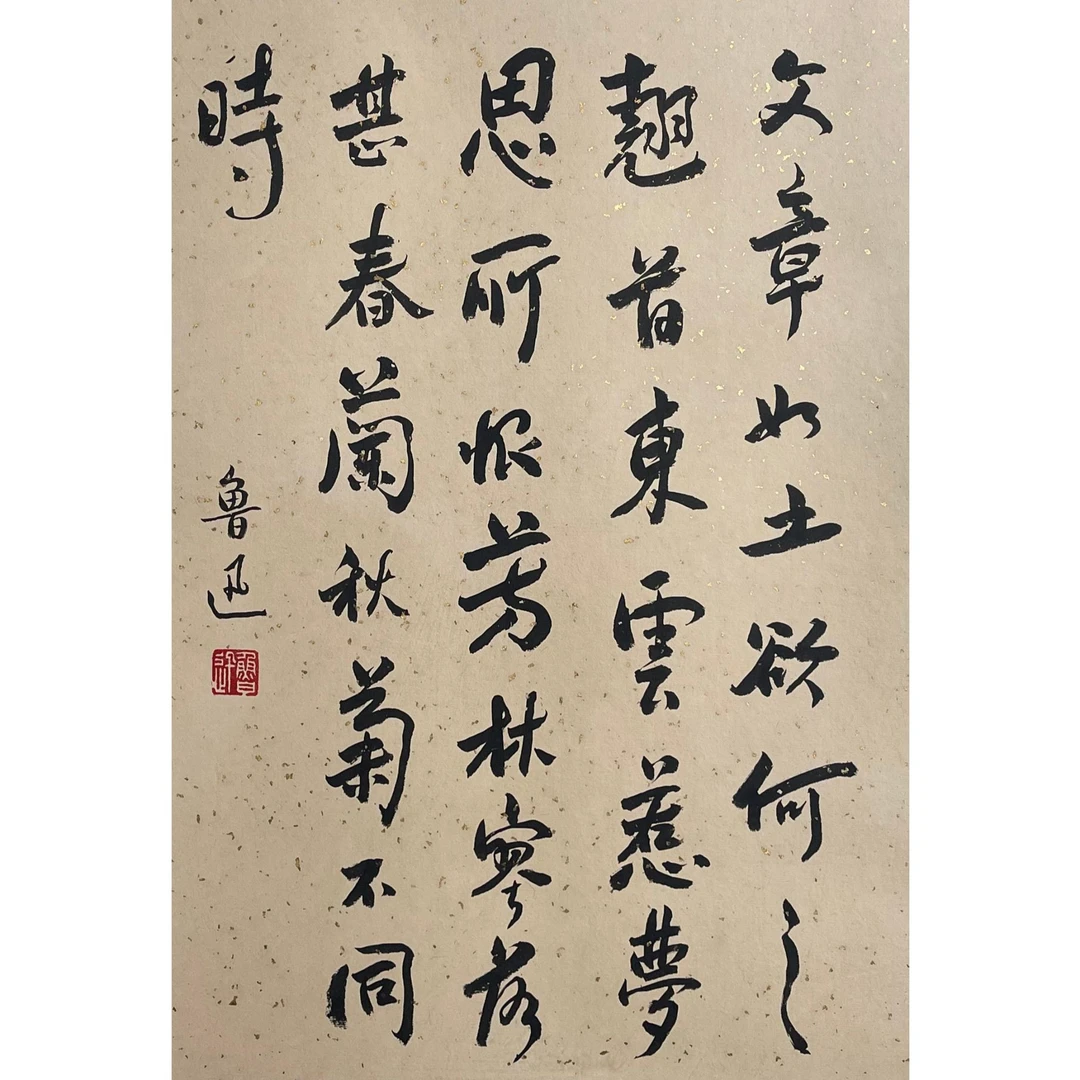 文章如土欲何之
翹首東雲惹夢
思所恨芳林寥落
甚春蘭秋菊不同
時
魯迅